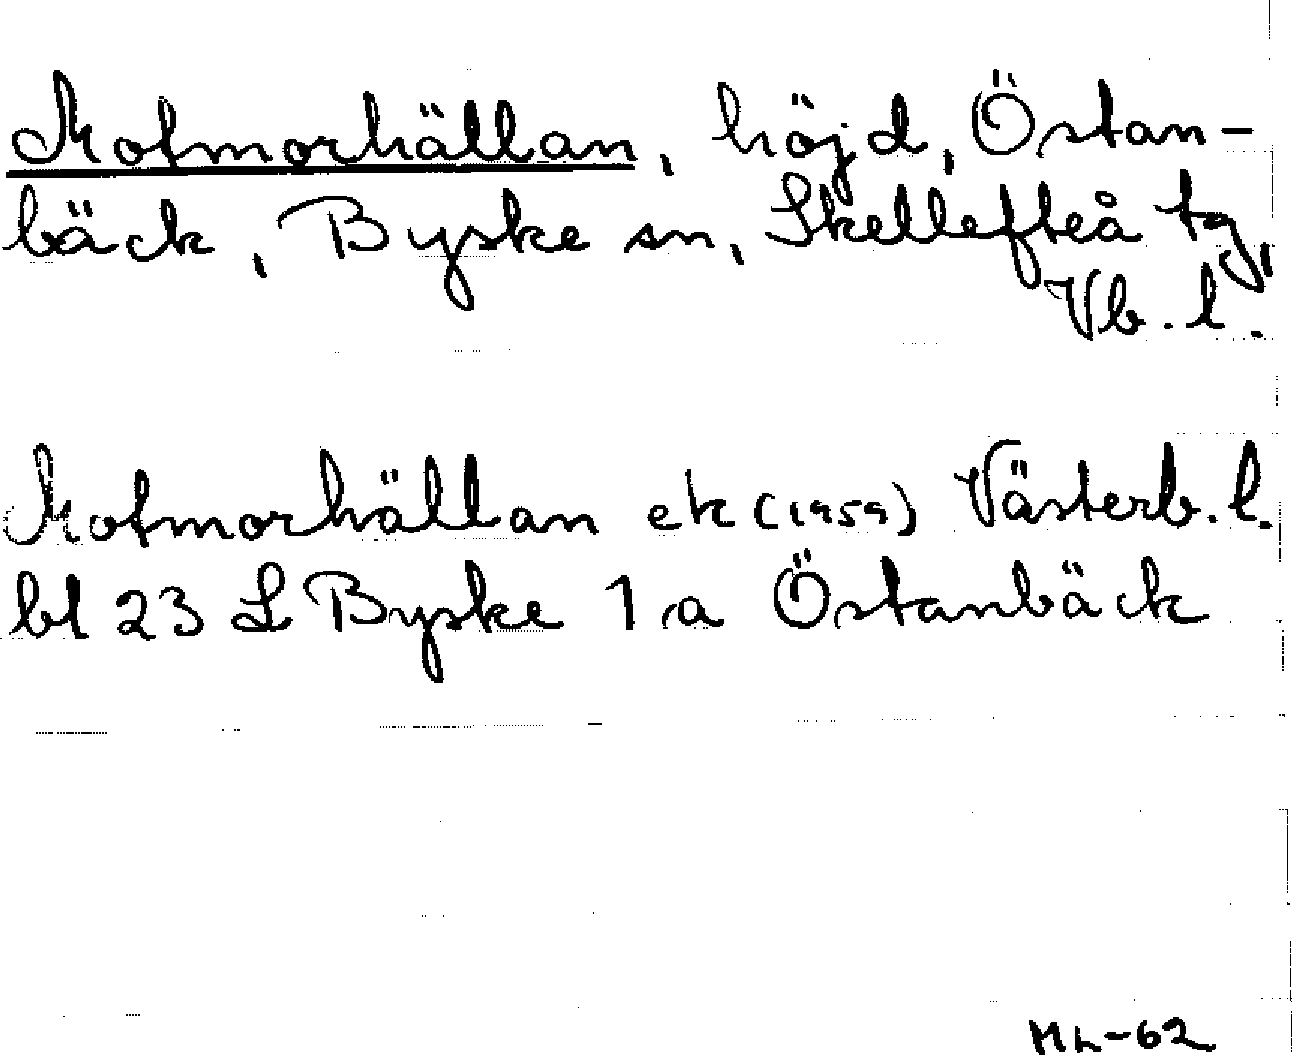 Mofmorhällan, höjd, Östan-
bäck, Byske sn, Skellefteå tg,
Vb. l.
Mofmorhällan ek (1959) Västerb. l.
bl 23 L Byske 1 a Östanbäck
ML-62